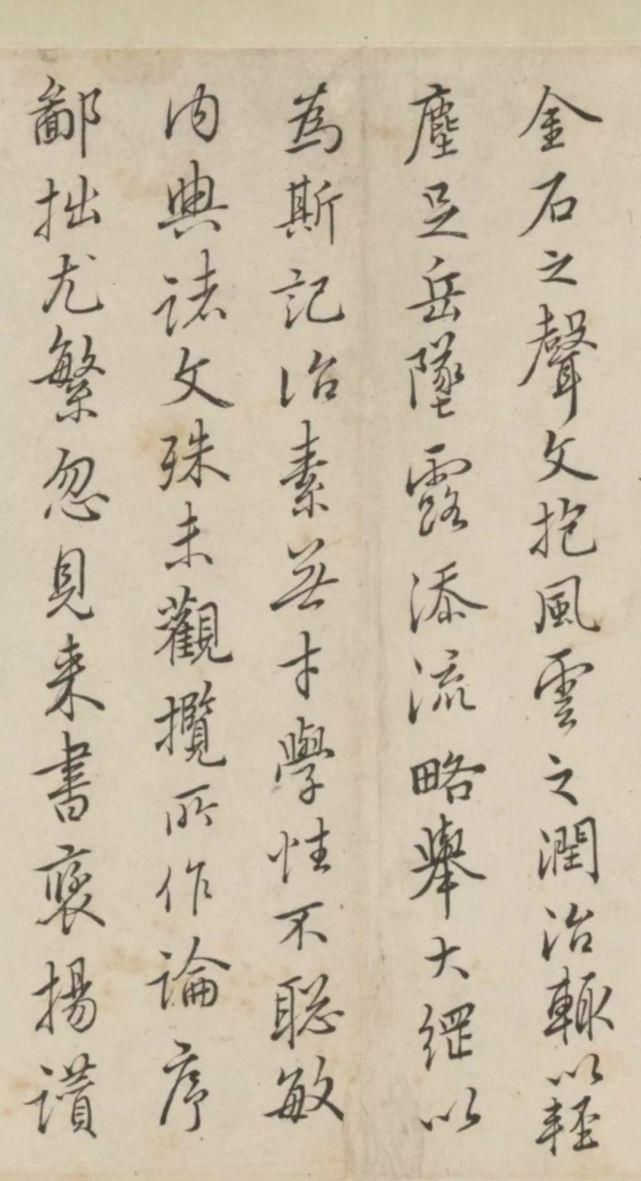 金石之聲文抱風雲之潤治輙以輕
塵足岳墜露添流略舉大綱以
為斯記治素無才學性不聰敏
内典諸文殊未觀攬所作論序
鄙拙尤繁忽見来書褒揚讃